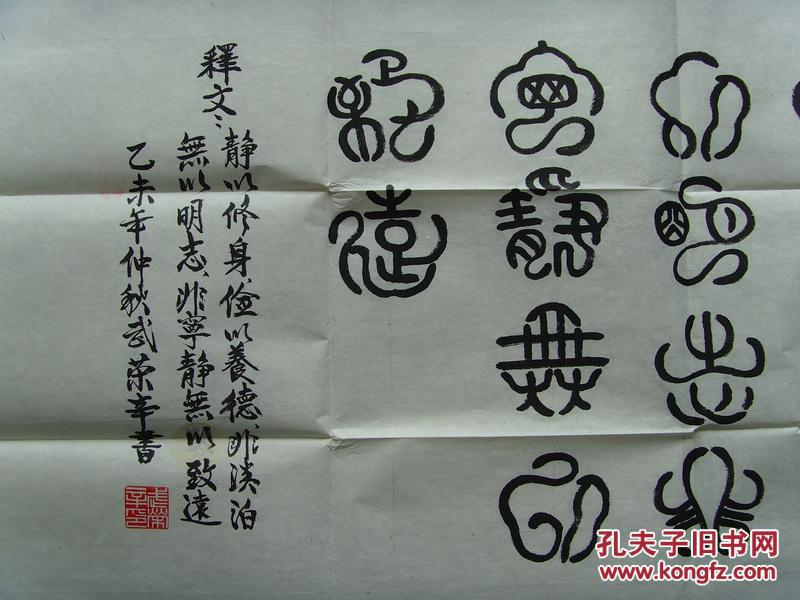 以明志非
寧靜無以
致遠
釋文：
靜以修身、儉以養德、非淡泊
無以明志、非寧靜無以致遠
乙未年仲秋武荣辛書
孔夫子旧书网
www.kongfz.com